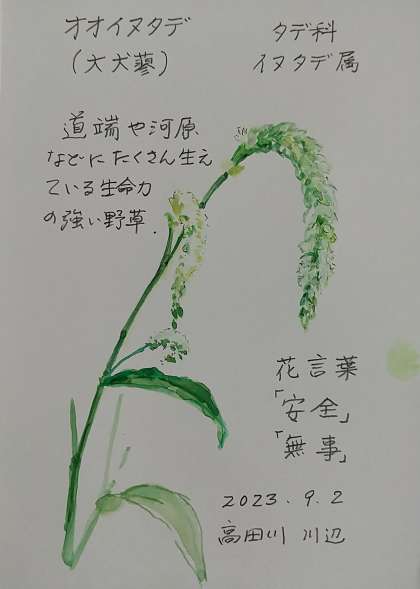 オオイヌタデ
(大犬蓼)
タデ科
イヌタデ属
道端や河原
などにたくさん生え
ている生命力
の強い野草.
花言葉
「安全」
「無事」
2023.9.2
高田川 川辺